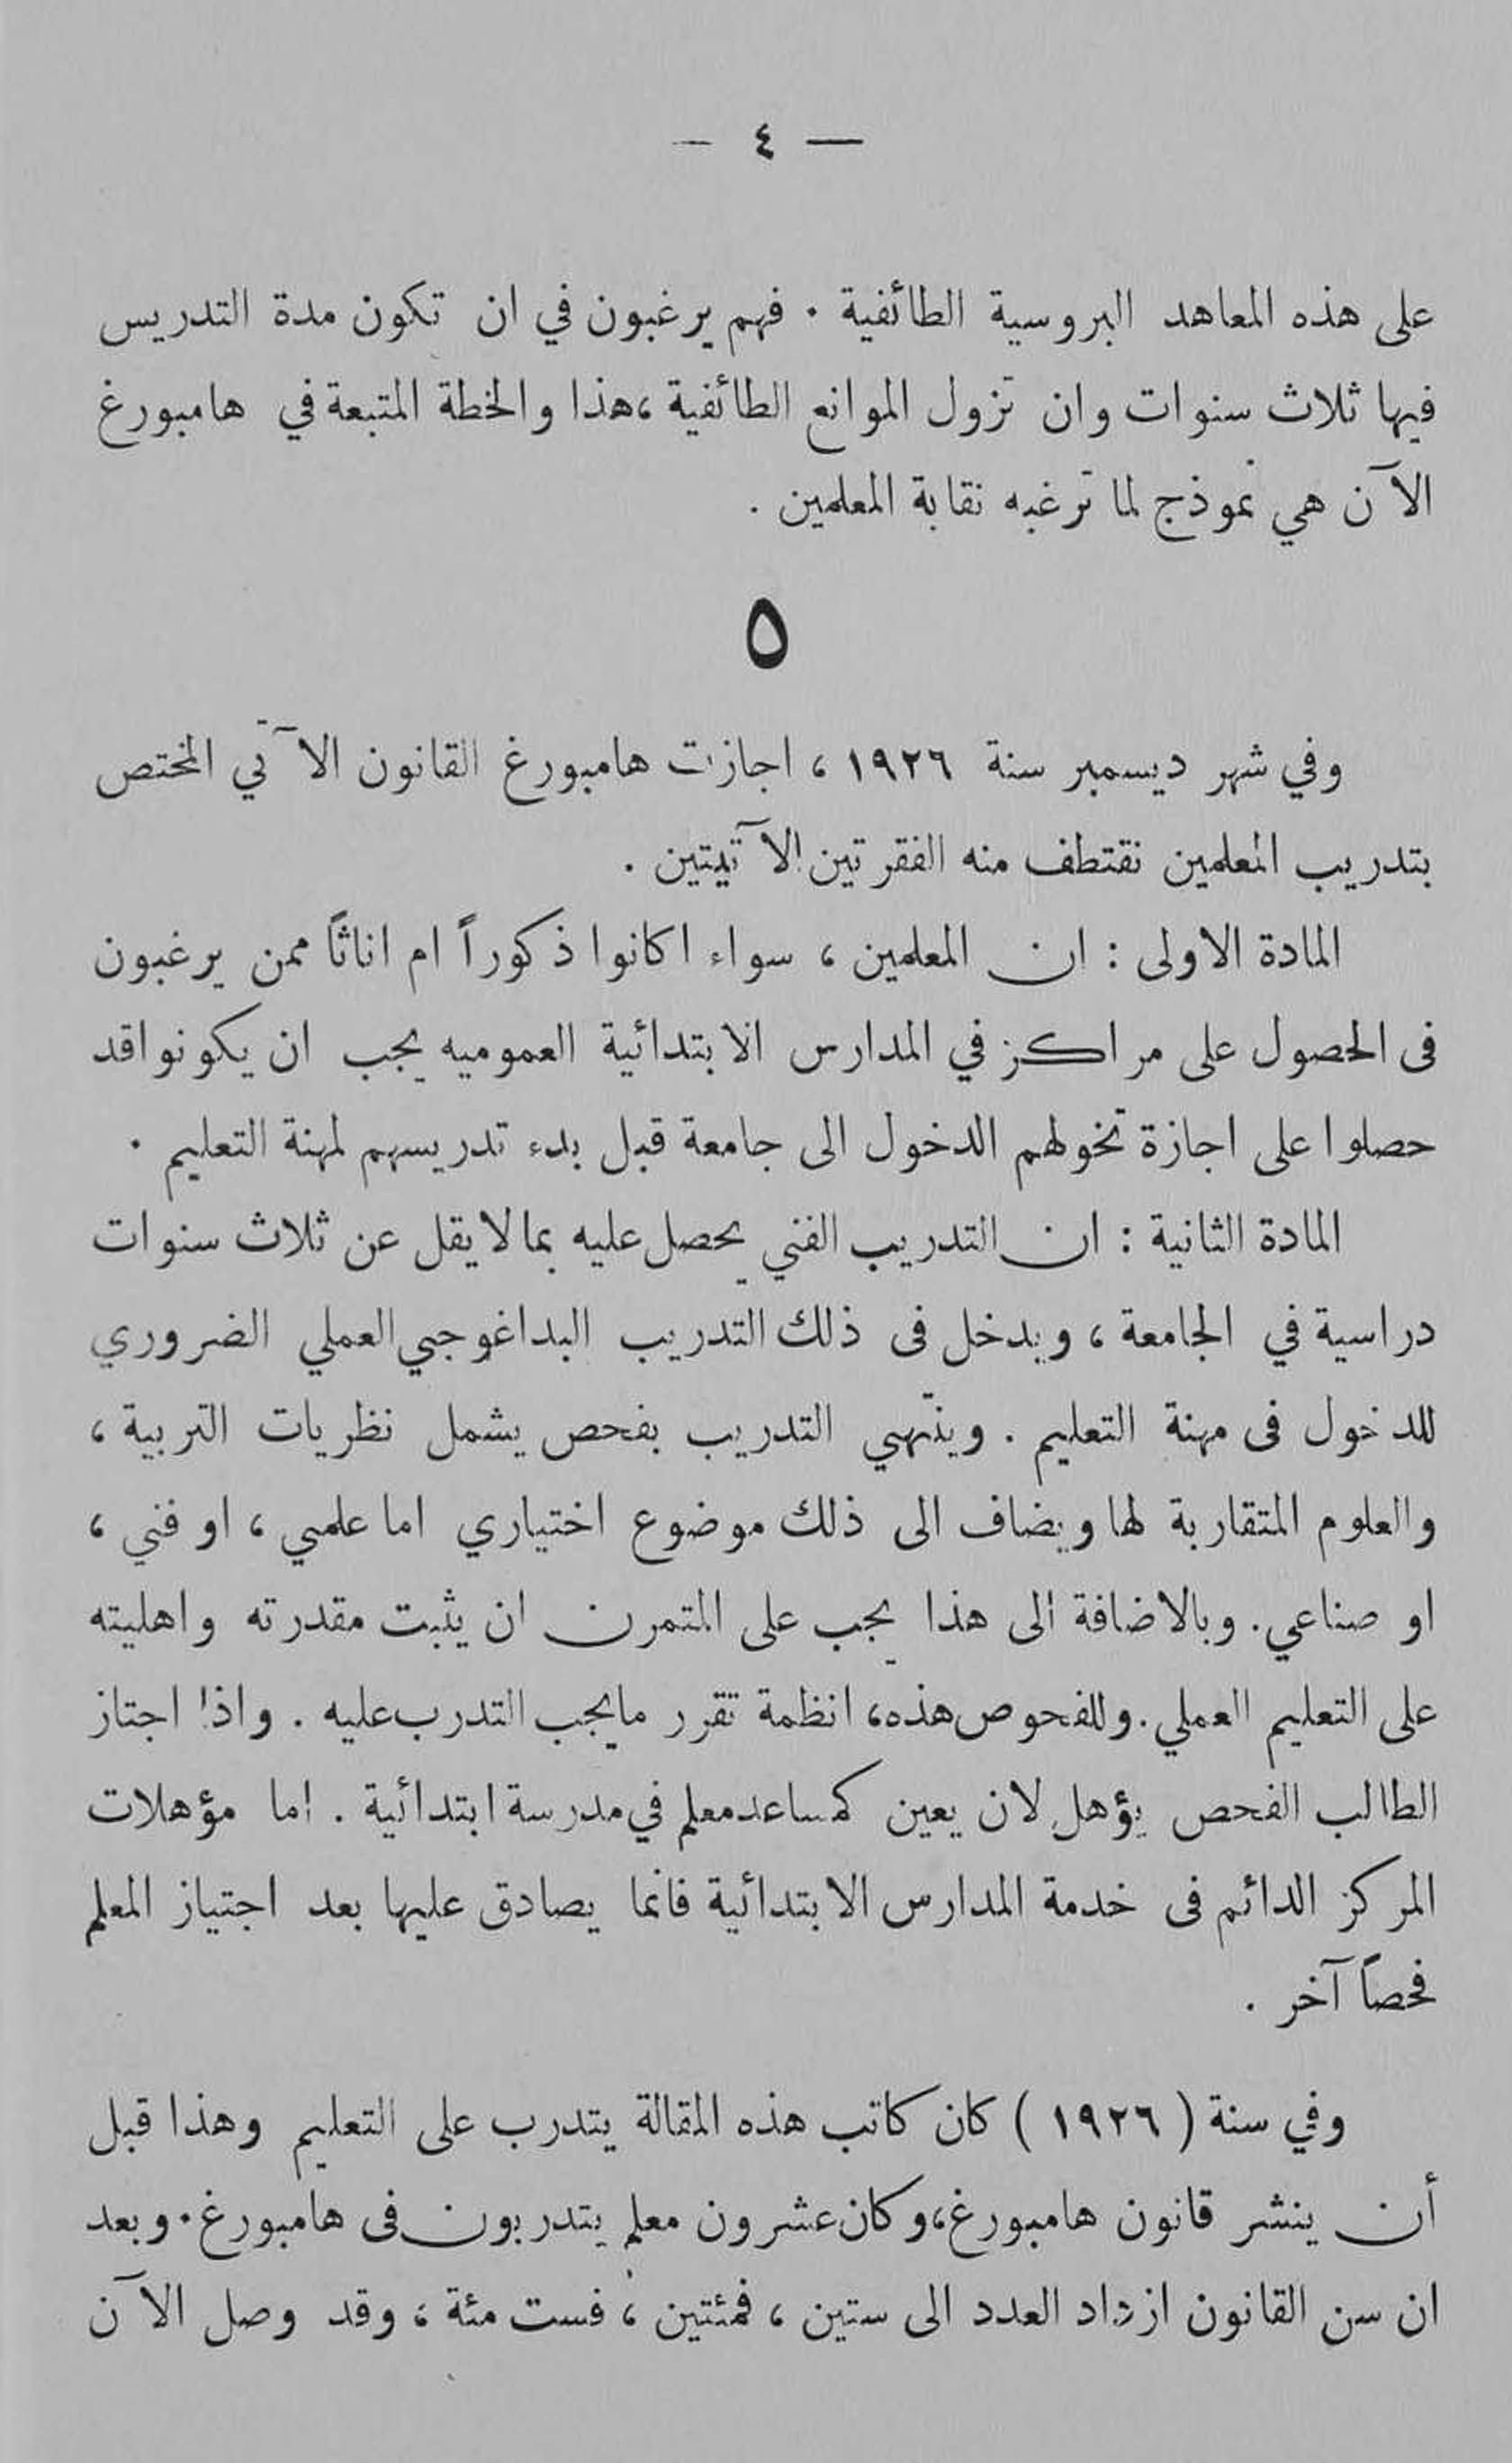 — ٤ —
على هذه المعاهد البروسية الطائفية . فهم يرغبون في ان تكون مدة التدريس
فيها ثلاث سنوات وان تزول الموانع الطائفية ،هذا والخطة المتبعة في هامبورغ
الآن هي نموذج لما ترغبه نقابة المعلمين .
٥
وفي شهر ديسمبر سنة ١٩٢٦ ، اجازت هامبورغ القانون الآتي المختص
بتدريب المعلمين نقتطف منه الفقرتين الآتيتين .
المادة الاولى : ان المعلمين ، سواء اكانوا ذكوراً ام اناثاً ممن يرغبون
فى الحصول على مراكز في المدارس الابتدائية العموميه يجب ان يكونوا قد
حصلوا على اجازة تخولهم الدخول الى جامعة قبل بدء تدريسهم لمهنة التعليم .
المادة الثانية : ان التدريب الفني يحصل عليه بما لا يقل عن ثلاث سنوات
دراسية في الجامعة ، ويدخل فى ذلك التدريب البداغوجي العملي الضروري
للدخول فى مهنة التعليم . وينتهي التدريب بفحص يشمل نظريات التربية ،
والعلوم المتقاربة لها ويضاف الى ذلك موضوع اختياري اما علمي ، او فني ،
او صناعي. وبالاضافة الى هذا يجب على المتمرن ان يثبت مقدرته واهليته
على التعليم العملي. وللفحوص هذه، انظمة تقرر ما يجب التدرب عليه . واذا اجتاز
الطالب الفحص يؤهل لان يعين كمساعد معلم في مدرسة ابتدائية . اما مؤهلات
المركز الدائم فى خدمة المدارس الابتدائية فانما يصادق عليها بعد اجتياز المعلم
فحصاً آخر .
وفي سنة ( ١٩٢٦ ) كان كاتب هذه المقالة يتدرب على التعليم وهذا قبل
أن ينشر قانون هامبورغ، وكان عشرون معلم يتدربون فى هامبورغ. وبعد
ان سن القانون ازداد العدد الى ستين ، فمئتين ، فست مئة ، وقد وصل الآن